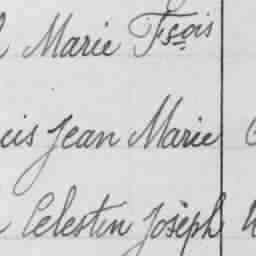 Marie Fsois
Jean Marie
Celestin Joseph